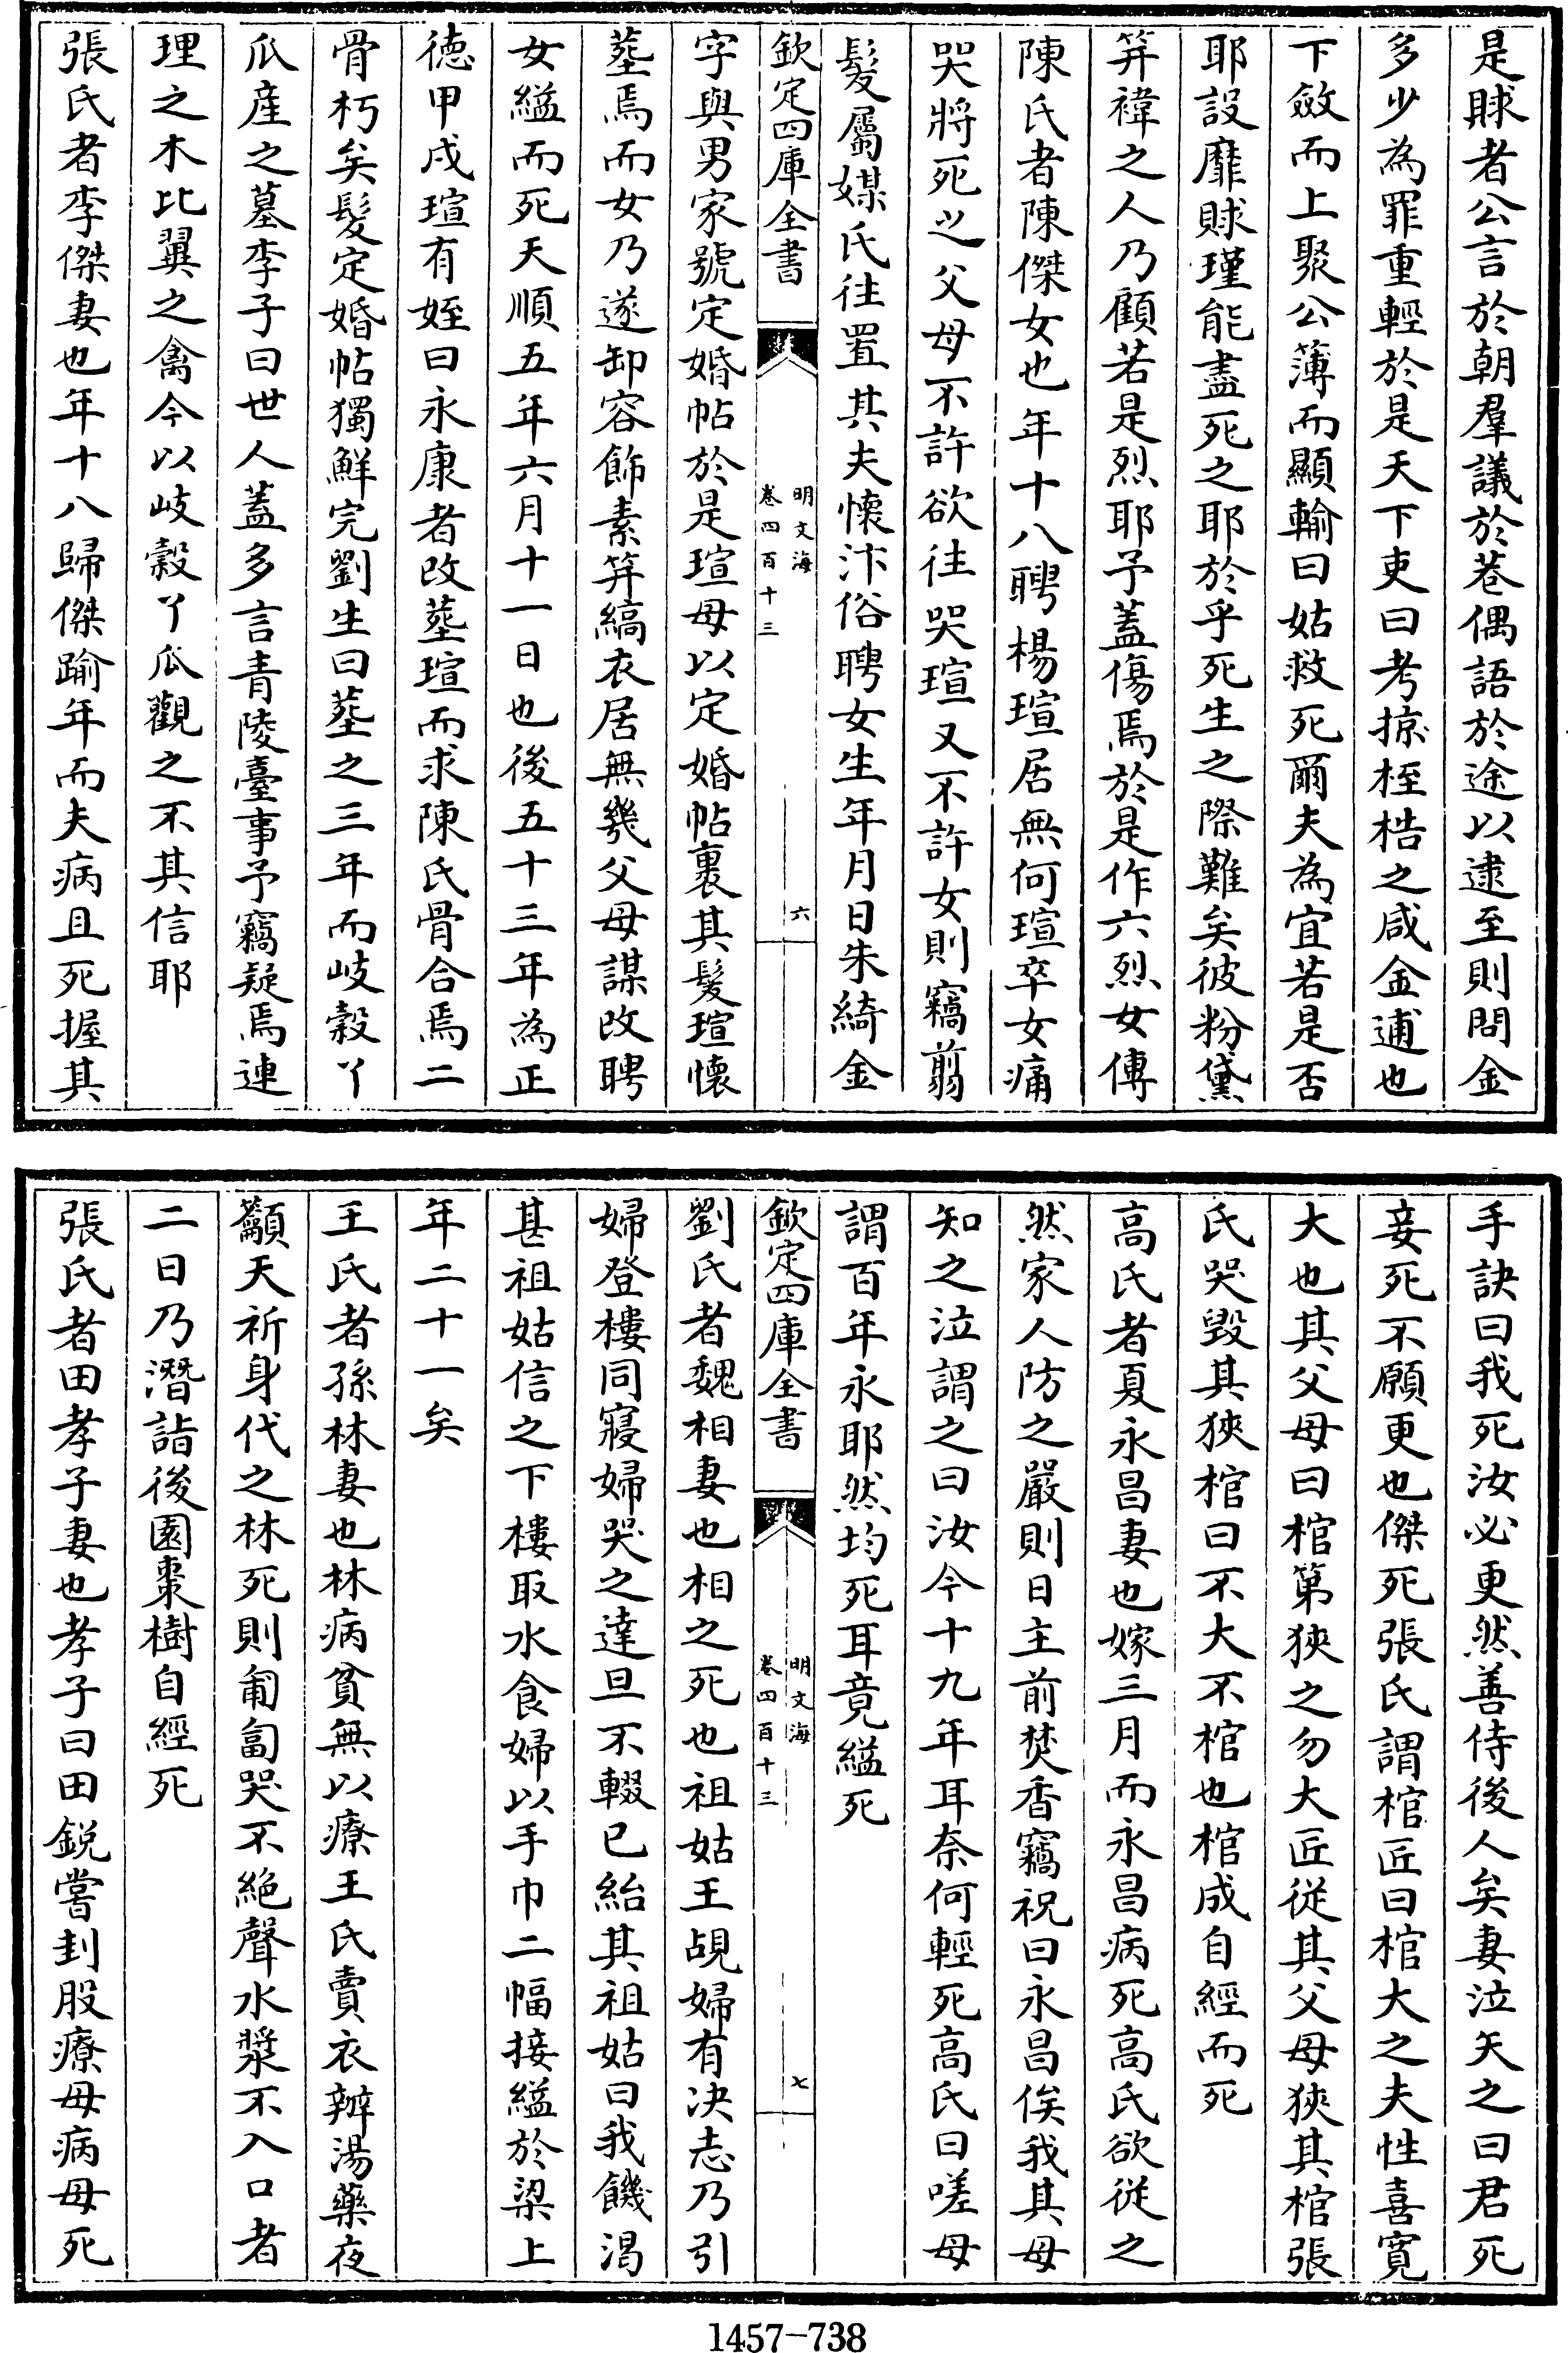 是賕者公言於朝羣議於巷偶語於途以逮至則問金
多少為罪重輕於是天下吏曰考掠桎梏之咸金逋也
下斂而上聚公薄而顯輸曰姑救死爾夫為宜若是否
耶設靡賕瑾能盡死之耶於乎死生之際難矣彼粉黛
笄褘之人乃顧若是烈耶予蓋傷焉於是作六烈女傳
陳氏者陳傑女也年十八聘楊瑄居無何瑄卒女痛
哭將死之父母不許欲往哭瑄又不許女則竊翦
髮屬媒氏往置其夫懷汴俗聘女生年月日朱綺金
欽定四庫全書
明文海
卷四百十三
六
字與男家號定婚帖於是瑄母以定婚帖裹其髮瑄懷
塟焉而女乃遂卸容飾素笄縞衣居無幾父母謀改聘
女縊而死天順五年六月十一日也後五十三年為正
德甲戌瑄有姪曰永康者改塟瑄而求陳氏骨合焉二
骨朽矣髮定婚帖獨鮮完劉生曰塟之三年而岐穀丫
瓜産之墓李子曰世人蓋多言青陵臺事予竊疑焉連
理之木比翼之禽今以岐穀丫瓜觀之不其信耶
張氏者李傑妻也年十八歸傑踰年而夫病且死握其
手訣曰我死汝必更然善侍後人矣妻泣矢之曰君死
妾死不願更也傑死張氏謂棺匠曰棺大之夫性喜寛
大也其父母曰棺第狹之勿大匠從其父母狹其棺張
氏哭毀其狹棺曰不大不棺也棺成自經而死
高氏者夏永昌妻也嫁三月而永昌病死高氏欲從之
然家人防之嚴則日主前焚香竊祝曰永昌俟我其母
知之泣謂之曰汝今十九年耳奈何輕死高氏曰嗟母
謂百年永耶然均死耳竟縊死
欽定四庫全書
明文海
卷四百十三
七
劉氏者魏相妻也相之死也祖姑王覘婦有决志乃引
婦登樓同寢婦哭之達旦不輟已紿其祖姑曰我饑渴
甚祖姑信之下樓取水食婦以手巾二幅接縊於梁上
年二十一矣
王氏者孫林妻也林病貧無以療王氏賣衣辦湯藥夜
籲天祈身代之林死則匍匐哭不絶聲水漿不入口者
二日乃潛詣後園棗樹自經死
張氏者田孝子妻也孝子曰田鋭嘗刲股療母病母死
1457-738